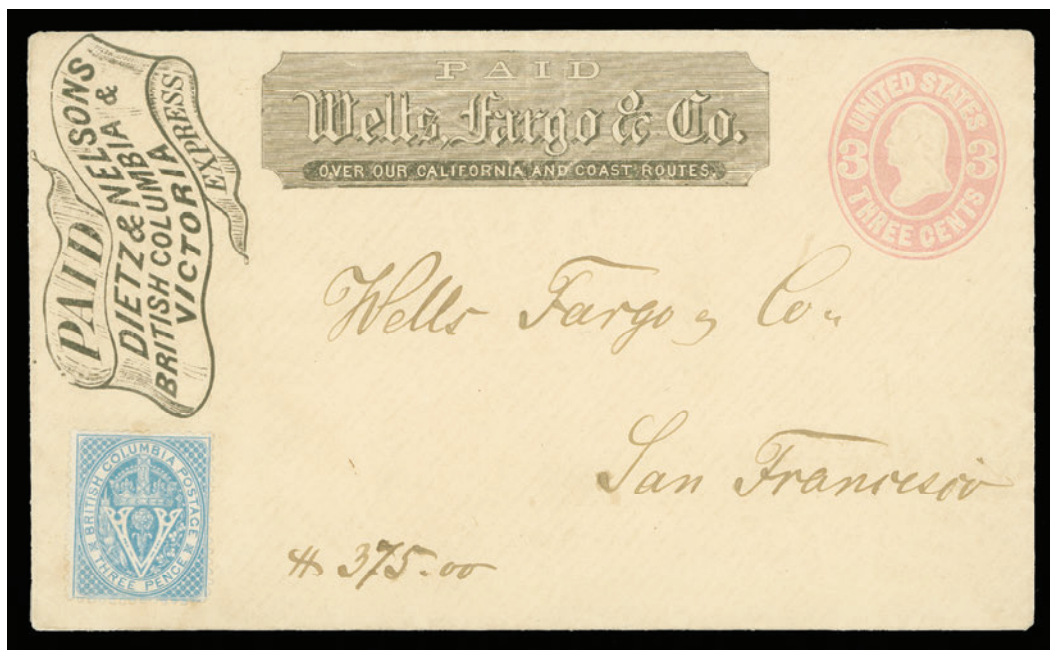 PAID
DIETZ & NELSONS
BRITISH COLUMBIA &
VICTORIA
EXPRESS
PAID
Wells, Fargo & Co.
OVER OUR CALIFORNIA AND COAST ROUTES.
UNITED STATES
3 3
THREE CENTS
Wells Fargo & Co.
San Francisco
BRITISH COLUMBIA POSTAGE
V
THREE PENCE
# 375.00